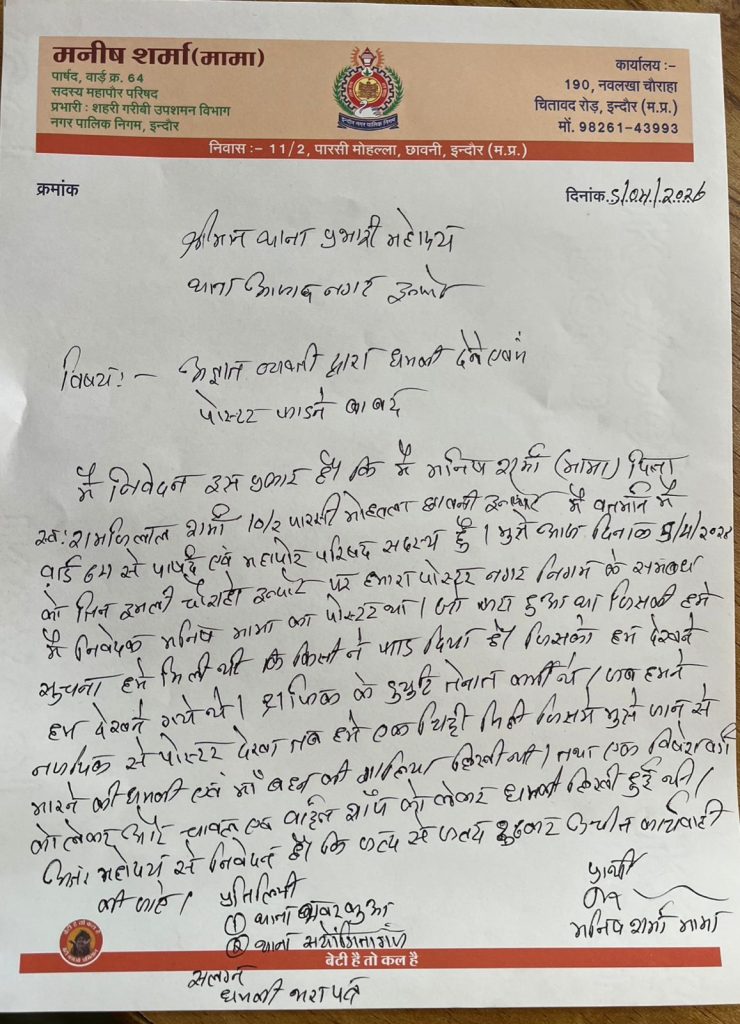 मनीष शर्मा(मामा)
पार्षद, वार्ड क्र. 64
सदस्य महापौर परिषद
प्रभारी : शहरी गरीबी उपशमन विभाग
नगर पालिक निगम, इन्दौर
इन्दौर नगर पालिक निगम
कार्यालय :-
190, नवलखा चौराहा
चितावद रोड़, इन्दौर (म.प्र.)
मों. 98261-43993
निवास :- 11/2, पारसी मोहल्ला, छावनी, इन्दौर (म.प्र.)
क्रमांक
दिनांक
श्रीमान थाना प्रभारी महोदय
थाना आजाद नगर इन्दौर
विषय:- अज्ञात व्यक्ती द्वारा धमकी देने एवं
पोस्टर फाडने बाबद
मै निवेदन इस प्रकार है। कि मै मनिष शर्मा (मामा) पिता
स्व: शर्मा 10/2 पारसी मोहल्ला छावनी इन्दौर मै वर्तमान मै
वार्ड 64 से पार्षद एवं महापौर परिषद सदस्य हूँ। मुझे आज दिनांक
को तिन इमली चौराहो इन्दौर पर हमारा पोस्टर नगर निगम के सम्बन्ध
मै निवेदक मनिष मामा का पोस्टर था। जो फटा हुआ था जिसकी हमे
सुचना हमे मिली थी कि किसी ने फाड दिया है। जिसको हम देखने
हम देखने गये थे। ट्राफिक के तैनात कर्मी थे। जब हमने
नजदिक से पोस्टर देखा तब हमे एक चिट्ठी मिली जिसमे मुझे जान से
मारने की धमकी एवं माँ बहन की गालिया लिखी थी। तथा एक विशेष वर्ग
को लेकर और एवं वाईन शॉप को लेकर धमकी लिखी हुई थी।
अतः महोदय से निवेदन है। कि जल्द से जल्द उचीत कार्यवाही
की जाऐ।
प्रतिलिपी
① थाना
② थाना संयोगितागंज
प्रार्थी
मनिष शर्मा मामा
बेटी है तो कल है
सलग्न
धमकी भरा पत्र